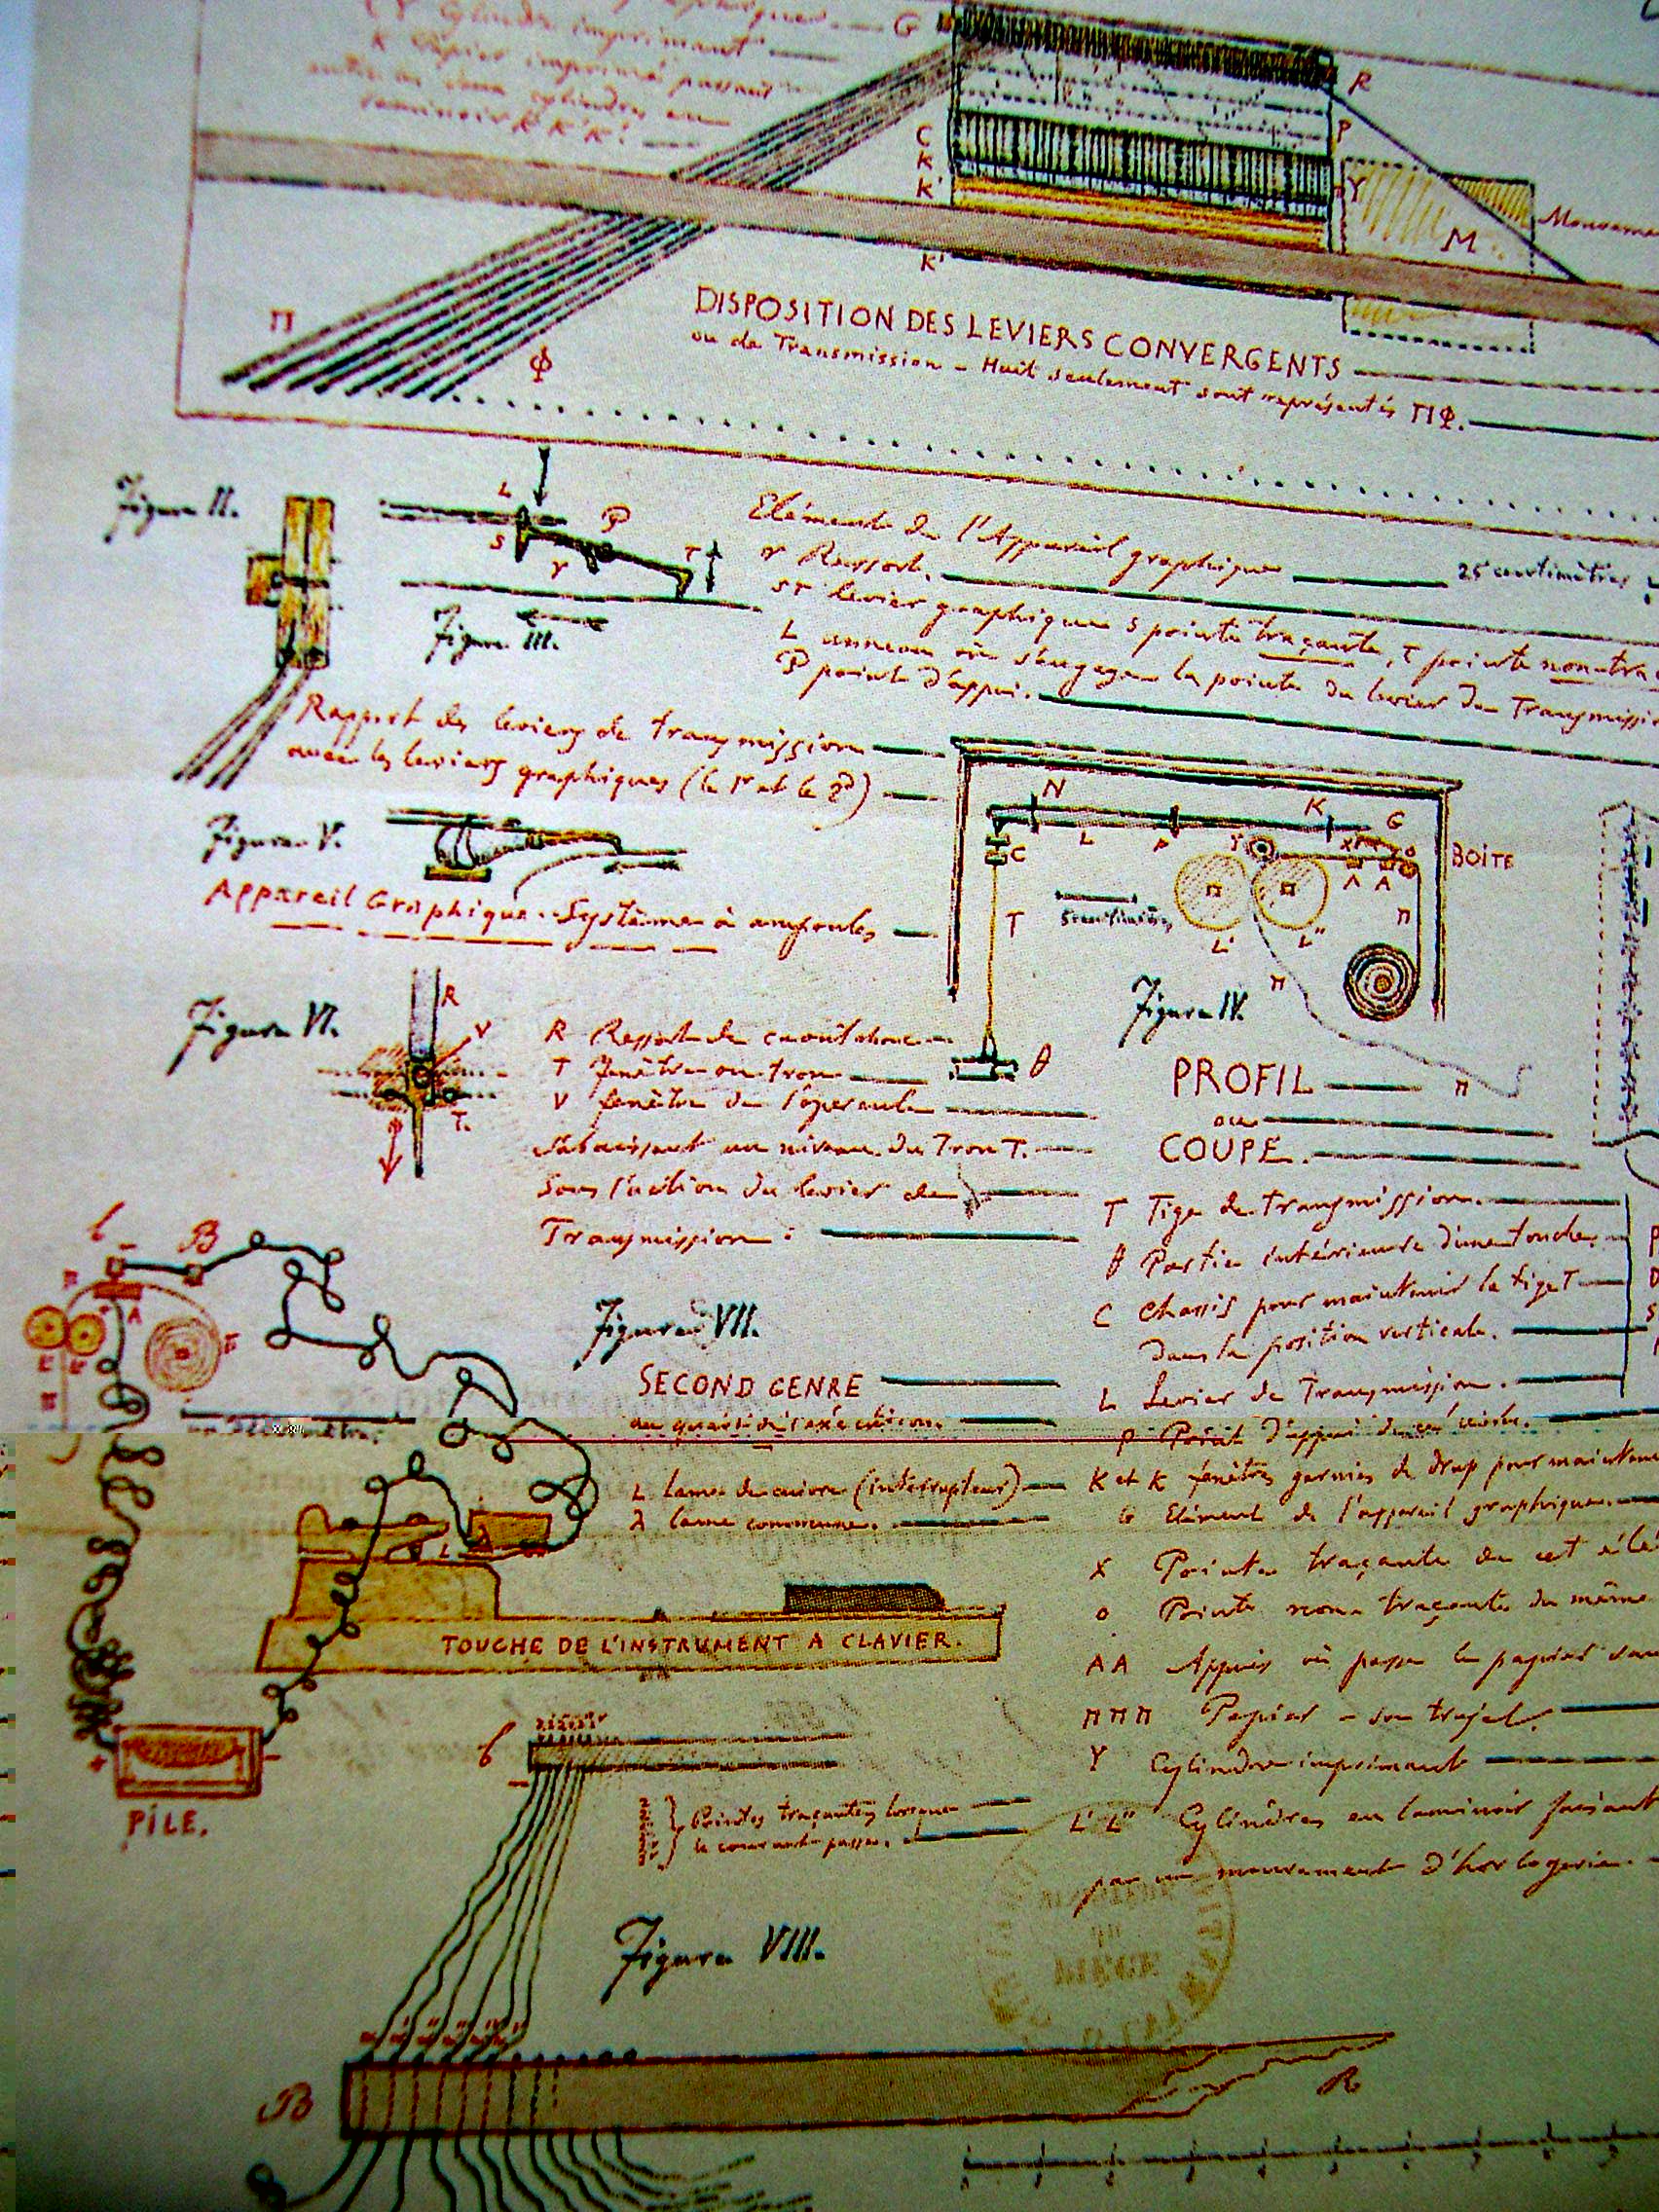 Cylindre imprimant
K Papier imprimé passant
entre les deux cylindres en
laminoir K K'.
G
R
C
P
K
Y
K'
M
K'
DISPOSITION DES LEVIERS CONVERGENTS
ou de Transmission - Huit seulement sont représentés ΠΦ.
Π
Φ
Figure II.
L
P
S
r
T
Figure III.
Elément de l'Appareil graphique 25 centimètres
r Ressort.
ST levier graphique S pointe traçante, T pointe non tra
L anneau où s'engage la pointe du levier de Transmissi
P point d'appui.
Rapport des leviers de transmission
avec les leviers graphiques (le 1er et le 2d)
Figure V.
Appareil Graphique. Système à ampoules
N
K
G
L
P
Y
X
o
C
A
A
BOITE
T
5 centimètres
L'
L"
Π
Π
Figure IV.
θ
Π
PROFIL
ou
COUPE.
Figure VI.
R
V
T.
R Ressort de caoutchouc
T fenêtre ou trou
V fenêtre de l'opercule
s'abaissant au niveau du Trou T.
Sous l'action du levier de
Transmission :
T Tige de transmission.
θ Partie intérieure d'une touche.
C Chassis pour maintenir la tige T
dans la position verticale.
L Levier de Transmission.
P Point d'appui de ce levier.
K et K fenêtres garnies de drap pour mainten
G Elément de l'appareil graphique.
X Pointe traçante de cet élé
o Pointe non traçante du même
AA Appuis où passe le papier
Π Π Π Papier - son trajet.
Y Cylindre imprimant
L' L" Cylindres en laminoir faisant
par un mouvement d'horlogerie.
b
B
A
Figure VII.
SECOND GENRE
au quart de l'exécution.
L lame de cuivre (interrupteur)
λ lame commune.
L
TOUCHE DE L'INSTRUMENT A CLAVIER.
+
-
PILE.
b
-
Pointes traçantes lorsque
le courant passe.
Figure VIII.
B
R